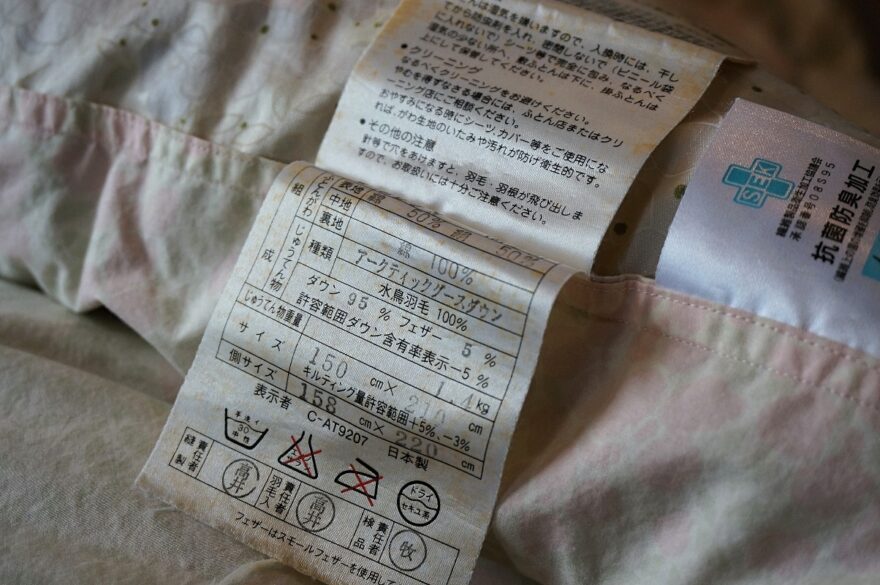 んは湿気を嫌いますので、入換時には、干し
てから防虫剤を入れ、密閉しないで(ビニール袋
に入れないで)シーツ等で完全に包み、なるべく
湿気の少ない所へ、敷ふとんは下に、掛ふとんは
上にして保管してください。
●クリーニング
なるべくクリーニングをお避けください。
やむを得ずなさる場合には、ふとん店またはクリ
ーニング店にご相談ください。
おやすみになる時にシーツ、カバー等をご使用にな
れば、がわ生地のいたみや汚れが防げ衛生的です。
●その他の注意
針等で穴をあけますと、羽毛・羽根が飛び出しま
すので、お取扱いには十分ご注意ください。
SEK
繊維製品衛生加工協議会
承認番号08S95
抗菌防臭加工
組成
ふとんがわ
表地
中地 50% 50%
裏地 綿 100%
じゅうてん物
種類 アークティックグースダウン
水鳥羽毛100%
ダウン 95 % フェザー 5 %
許容範囲ダウン含有率表示−5%
じゅうてん物重量 1.4kg
キルティング量許容範囲+5%、−3%
サイズ 150 cm× 210 cm
側サイズ 158 cm× 220 cm
表示者 C-AT9207 日本製
手洗イ 30 中性
エンソサラシ
ドライ セキユ系
縫製責任者 高井
羽毛入責任者 高井
検品責任者 牧
フェザーはスモールフェザーを使用して